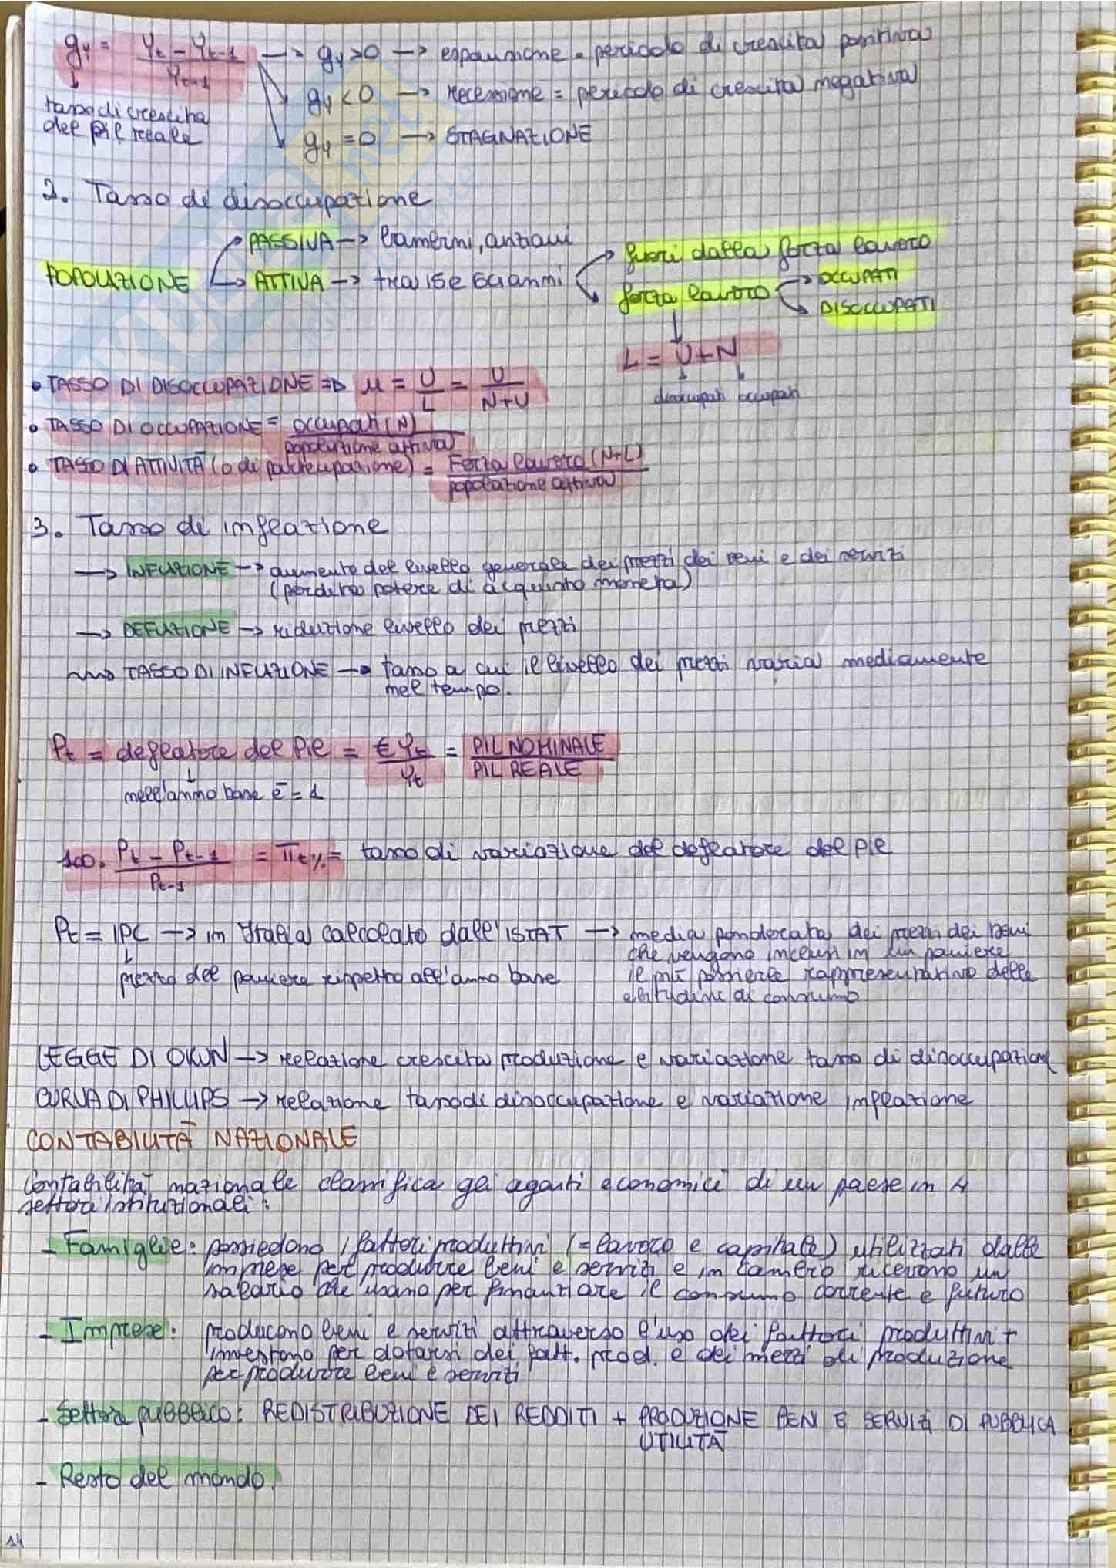 gy = Yt - Yt-1 / Yt-1 → gy > 0 → espansione = periodo di crescita positiva
gy < 0 → recessione = periodo di crescita negativa
tasso di crescita
del pil reale
gy = 0 → STAGNAZIONE
2. Tasso di disoccupazione
PASSIVA → bambini, anziani
fuori dalla forza lavoro
POPOLAZIONE → ATTIVA → tra 15 e 64 anni
forza lavoro → OCCUPATI
DISOCCUPATI
L = U + N
disoccupati occupati
• TASSO DI DISOCCUPAZIONE => u = U/L = U/N+U
• TASSO DI OCCUPAZIONE = occupati (N) / popolazione attiva
• TASSO DI ATTIVITÀ (o di partecipazione) = Forza lavoro (N+L) / popolazione attiva
3. Tasso di inflazione
→ INFLAZIONE → aumento del livello generale dei prezzi dei beni e dei servizi
(perdita potere di acquisto moneta)
→ DEFLAZIONE → riduzione livello dei prezzi
TASSO DI INFLAZIONE → tasso a cui il livello dei prezzi varia mediamente
nel tempo.
Pt = deflatore del PIL = €Yt / Yt = PIL NOMINALE / PIL REALE
nell'anno base è = 1
100 · Pt - Pt-1 / Pt-1 = πt% = tasso di variazione del deflatore del PIL
Pt = IPC → in Italia calcolato dall'ISTAT → media ponderata dei prezzi dei beni
che vengono inclusi in un paniere
prezzo del paniere rispetto all'anno base
il più possibile rappresentativo delle
abitudini di consumo
LEGGE DI OKUN → relazione crescita produzione e variazione tasso di disoccupazione
CURVA DI PHILLIPS → relazione tasso di disoccupazione e variazione inflazione
CONTABILITÀ NAZIONALE
Contabilità nazionale classifica gli agenti economici di un paese in 4
settori istituzionali:
- Famiglie: possiedono i fattori produttivi (= lavoro e capitale) utilizzati dalle
imprese per produrre beni e servizi e in cambio ricevono un
salario che usano per finanziare il consumo corrente e futuro
- Imprese: producono beni e servizi attraverso l'uso dei fattori produttivi +
investono per dotarsi dei fatt. prod. e dei mezzi di produzione
per produrre beni e servizi
- Settore pubblico: REDISTRIBUZIONE DEI REDDITI + PRODUZIONE BENI E SERVIZI DI PUBBLICA
UTILITÀ
- Resto del mondo.